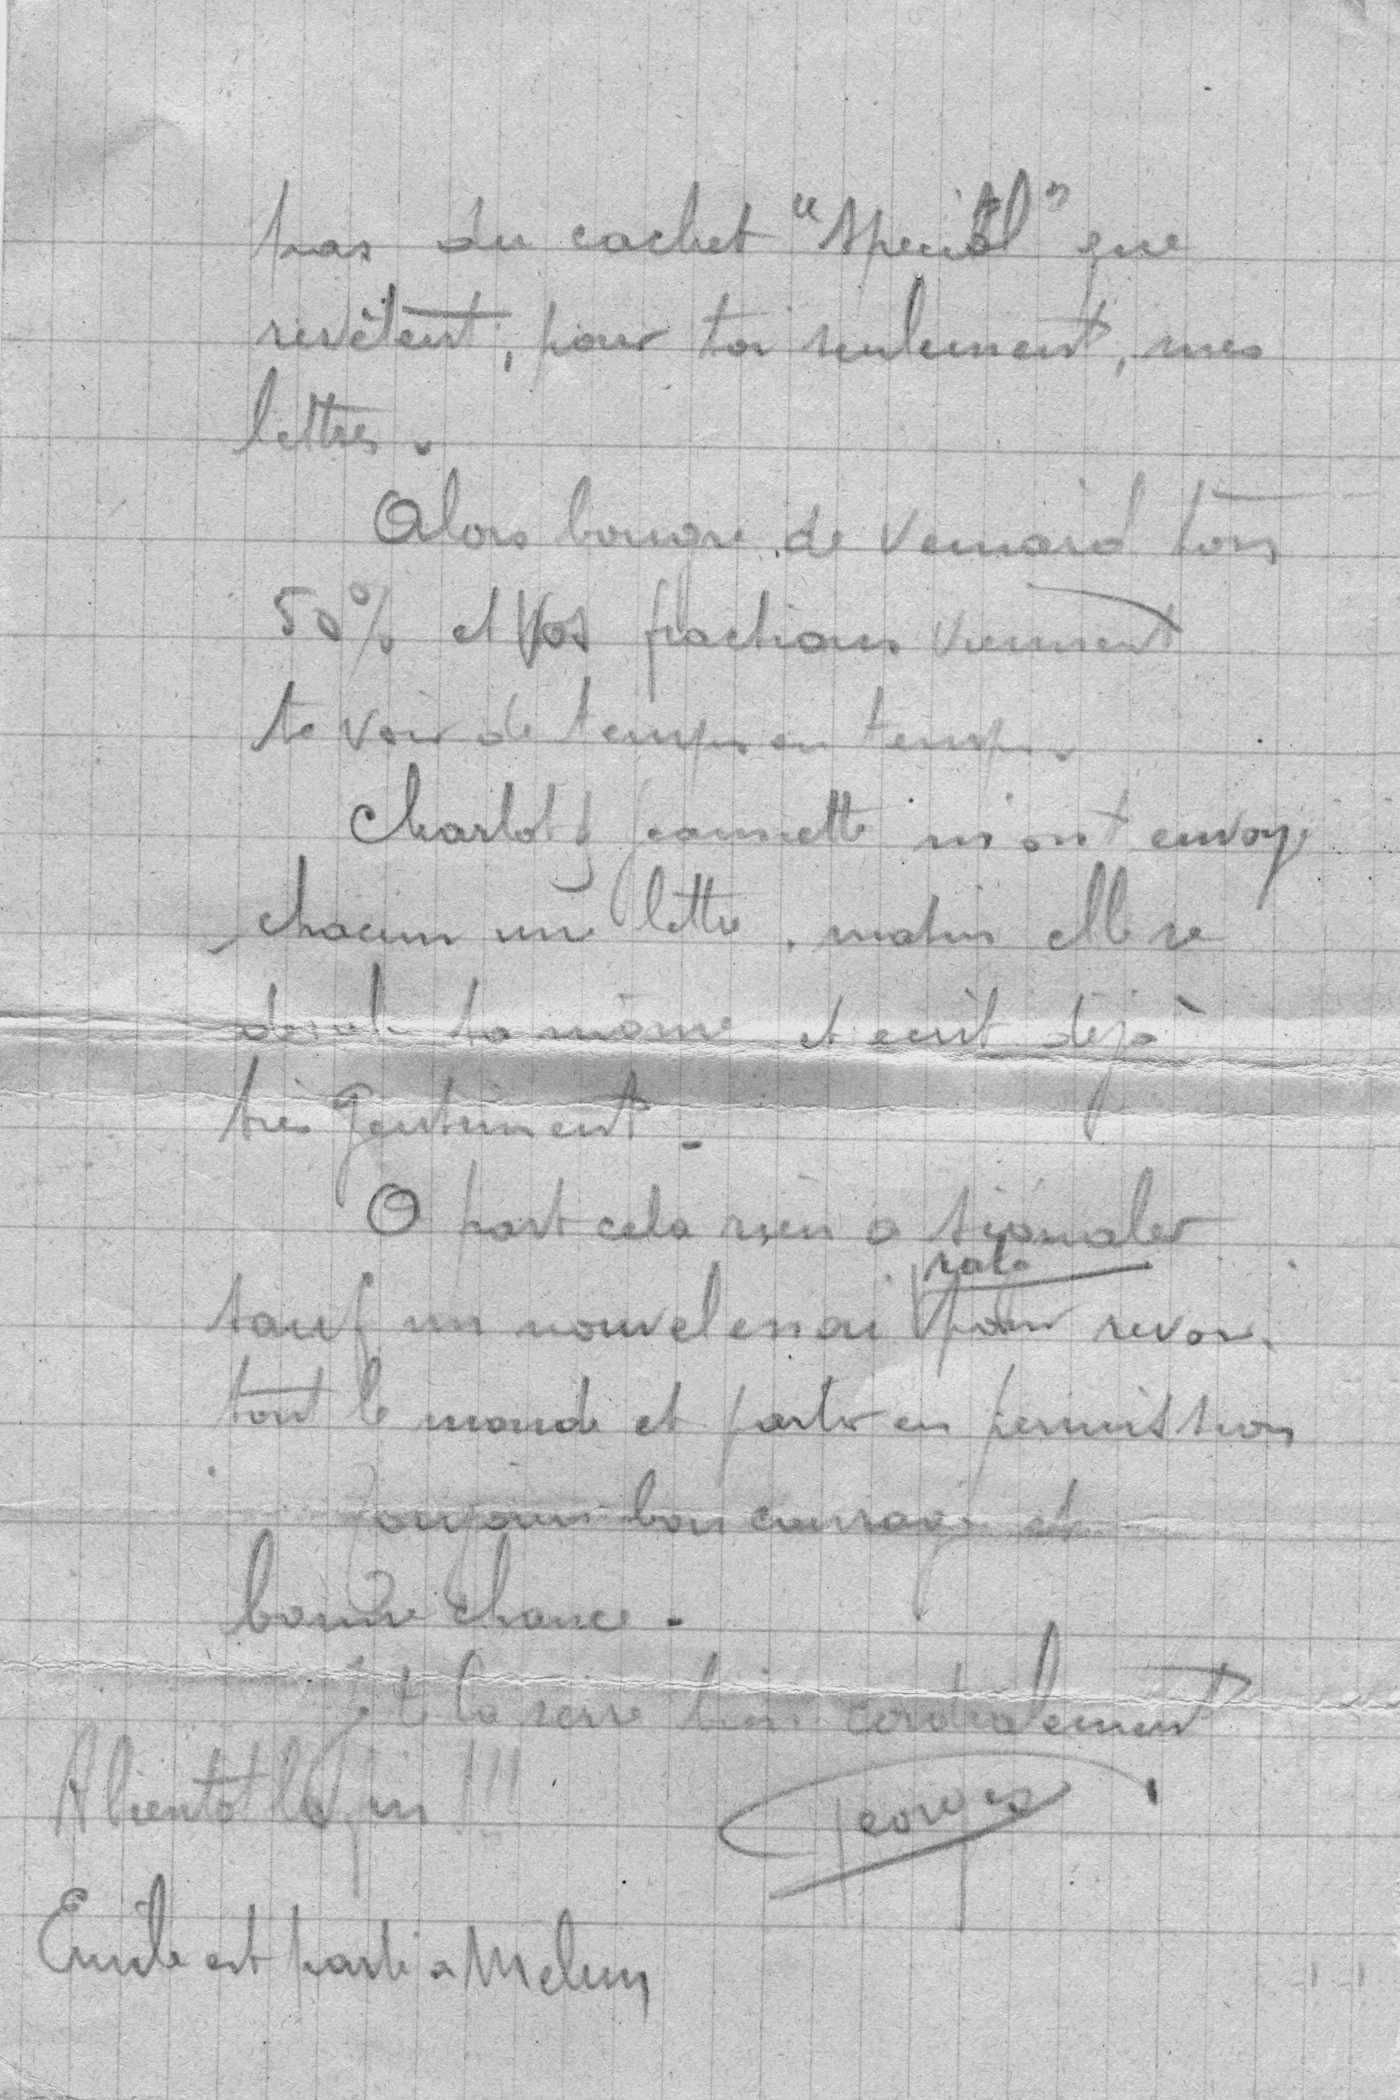 pas du cachet "spécial" que
revêtent, pour toi seulement, mes
lettres.
Alors bougre de veinard ton
50% et tes fractions viennent
te voir de temps en temps.
Charlot & Jeannette m'ont envoyé
chacun une lettre, mâtin elle se
dessale ta môme et écrit déjà
très gentiment -
A part cela rien à signaler
raté
sauf un nouvel essai pour revoir
tout le monde et partir en permission
Toujours bon courage et
bonne chance -
Je te la serre bien cordialement
A bientôt la fin !!!
Georges
Emile est parti à Melun